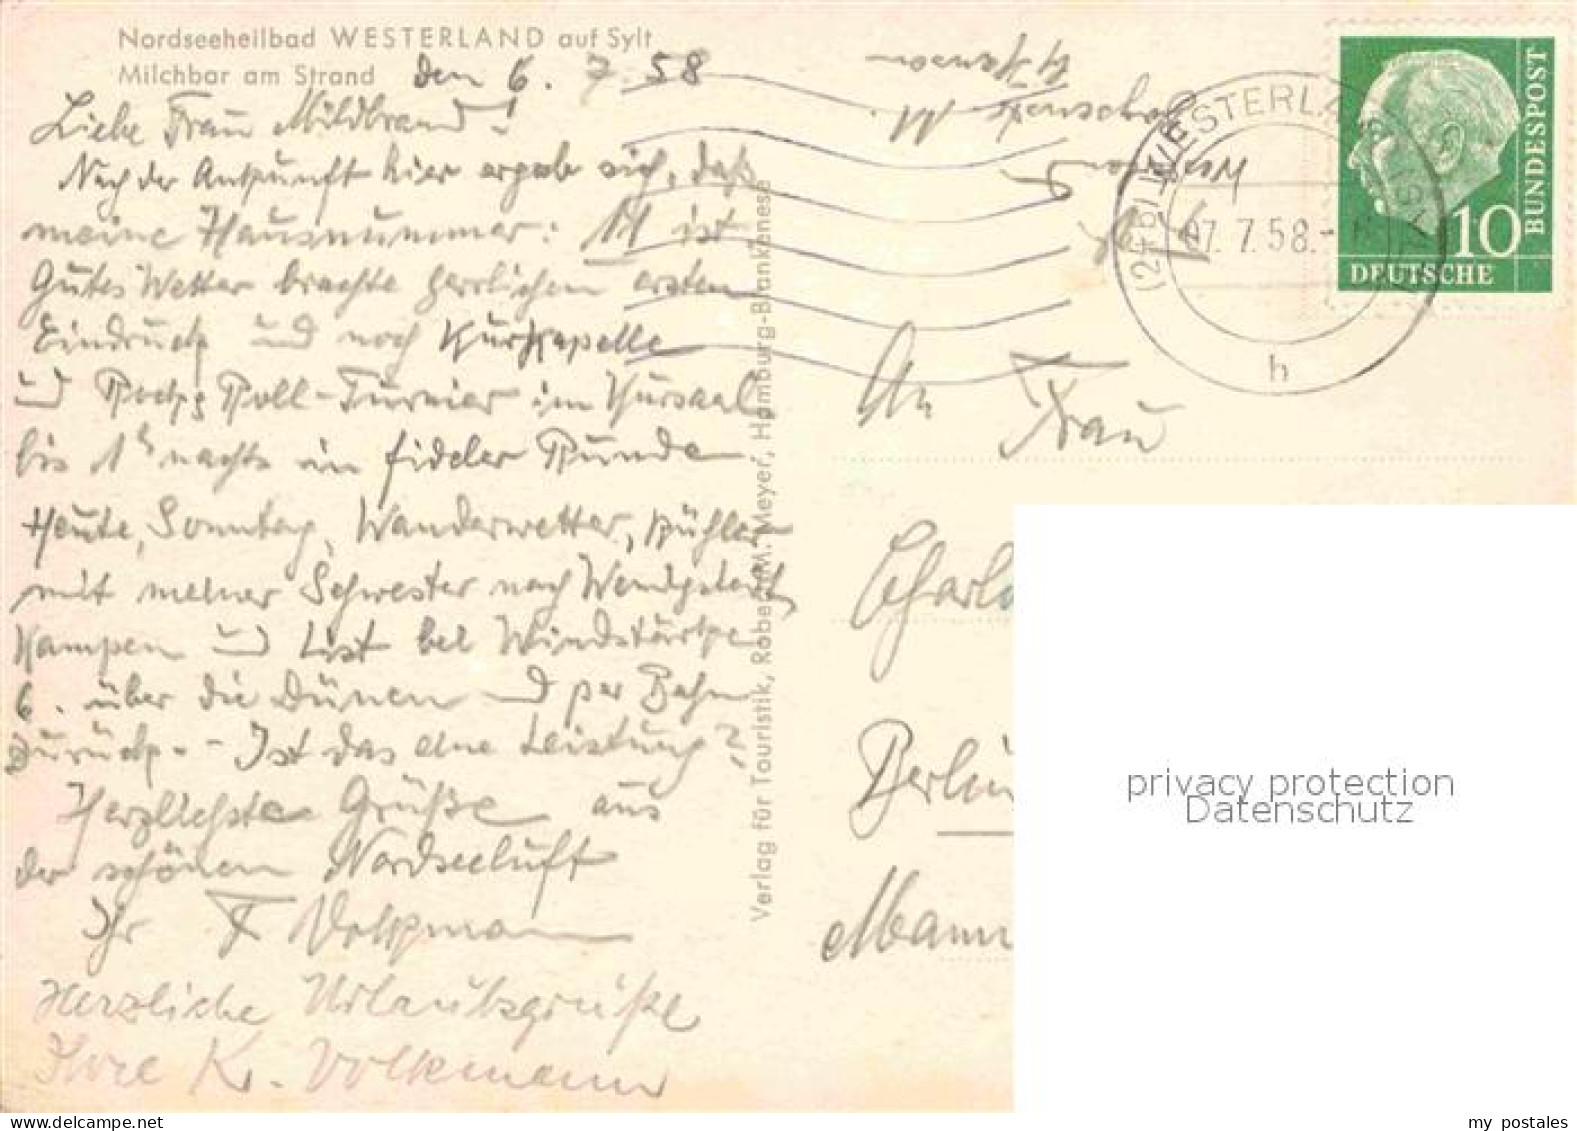 Nordseeheilbad WESTERLAND auf Sylt
Milchbar am Strand
den 6. 7. 58
Liebe Frau Mildbrand!
Nach der Ankunft hier ergab sich, daß
meine Hausnummer: 11 ist
Gutes Wetter brachte herrlichen ersten
Eindruck und noch Kurkapelle
und Rock Roll-Turnier im Kursaal
bis 1h nachts in fideler Runde
Heute, Sonntag, Wanderwetter, kühler
mit meiner Schwester nach
Kampen und List bei Windstärke
6. über die Dünen und per Bahn
zurück. - Ist das eine Leistung?
Herzlichste Grüße aus
der schönen Nordseeluft
Ihr F Volkmann
Herzliche Urlaubsgrüße
Ihre K. Volkmann
Verlag für Touristik, Robert M. Meyer, Hamburg-Blankenese
WESTERLAND (SYLT)
07. 7. 58.-
h
DEUTSCHE
BUNDESPOST
10
An Frau
Charlo
Berlin
Mann
privacy protection
Datenschutz
my postales